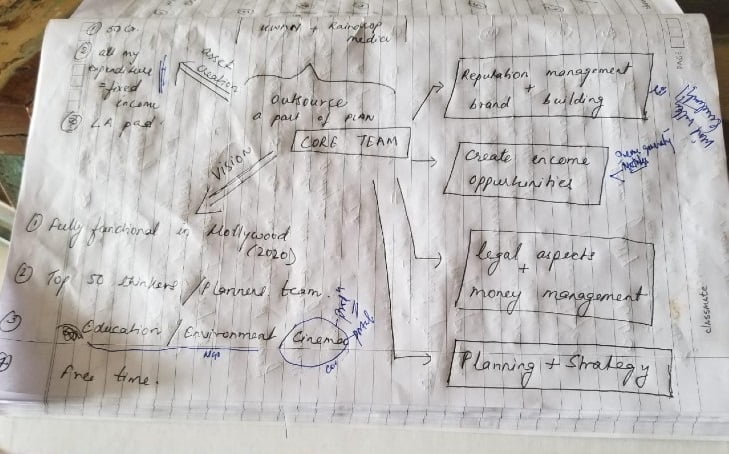 ① 50 Cr.
② all my
expenditure
= fixed
income
③ LA pad
asset
creation
KWAN + Raindrop
media
outsource
a part of PLAN
CORE TEAM
Reputation management
+
brand building
Create income
oppurtunities
legal aspects
+
money management
Planning + Strategy
VISION
① Fully functional in Hollywood
(2020)
② Top 50 thinkers / planners team.
③ Education / Environment / Cinema
NGO
free time.
PAGE
classmate